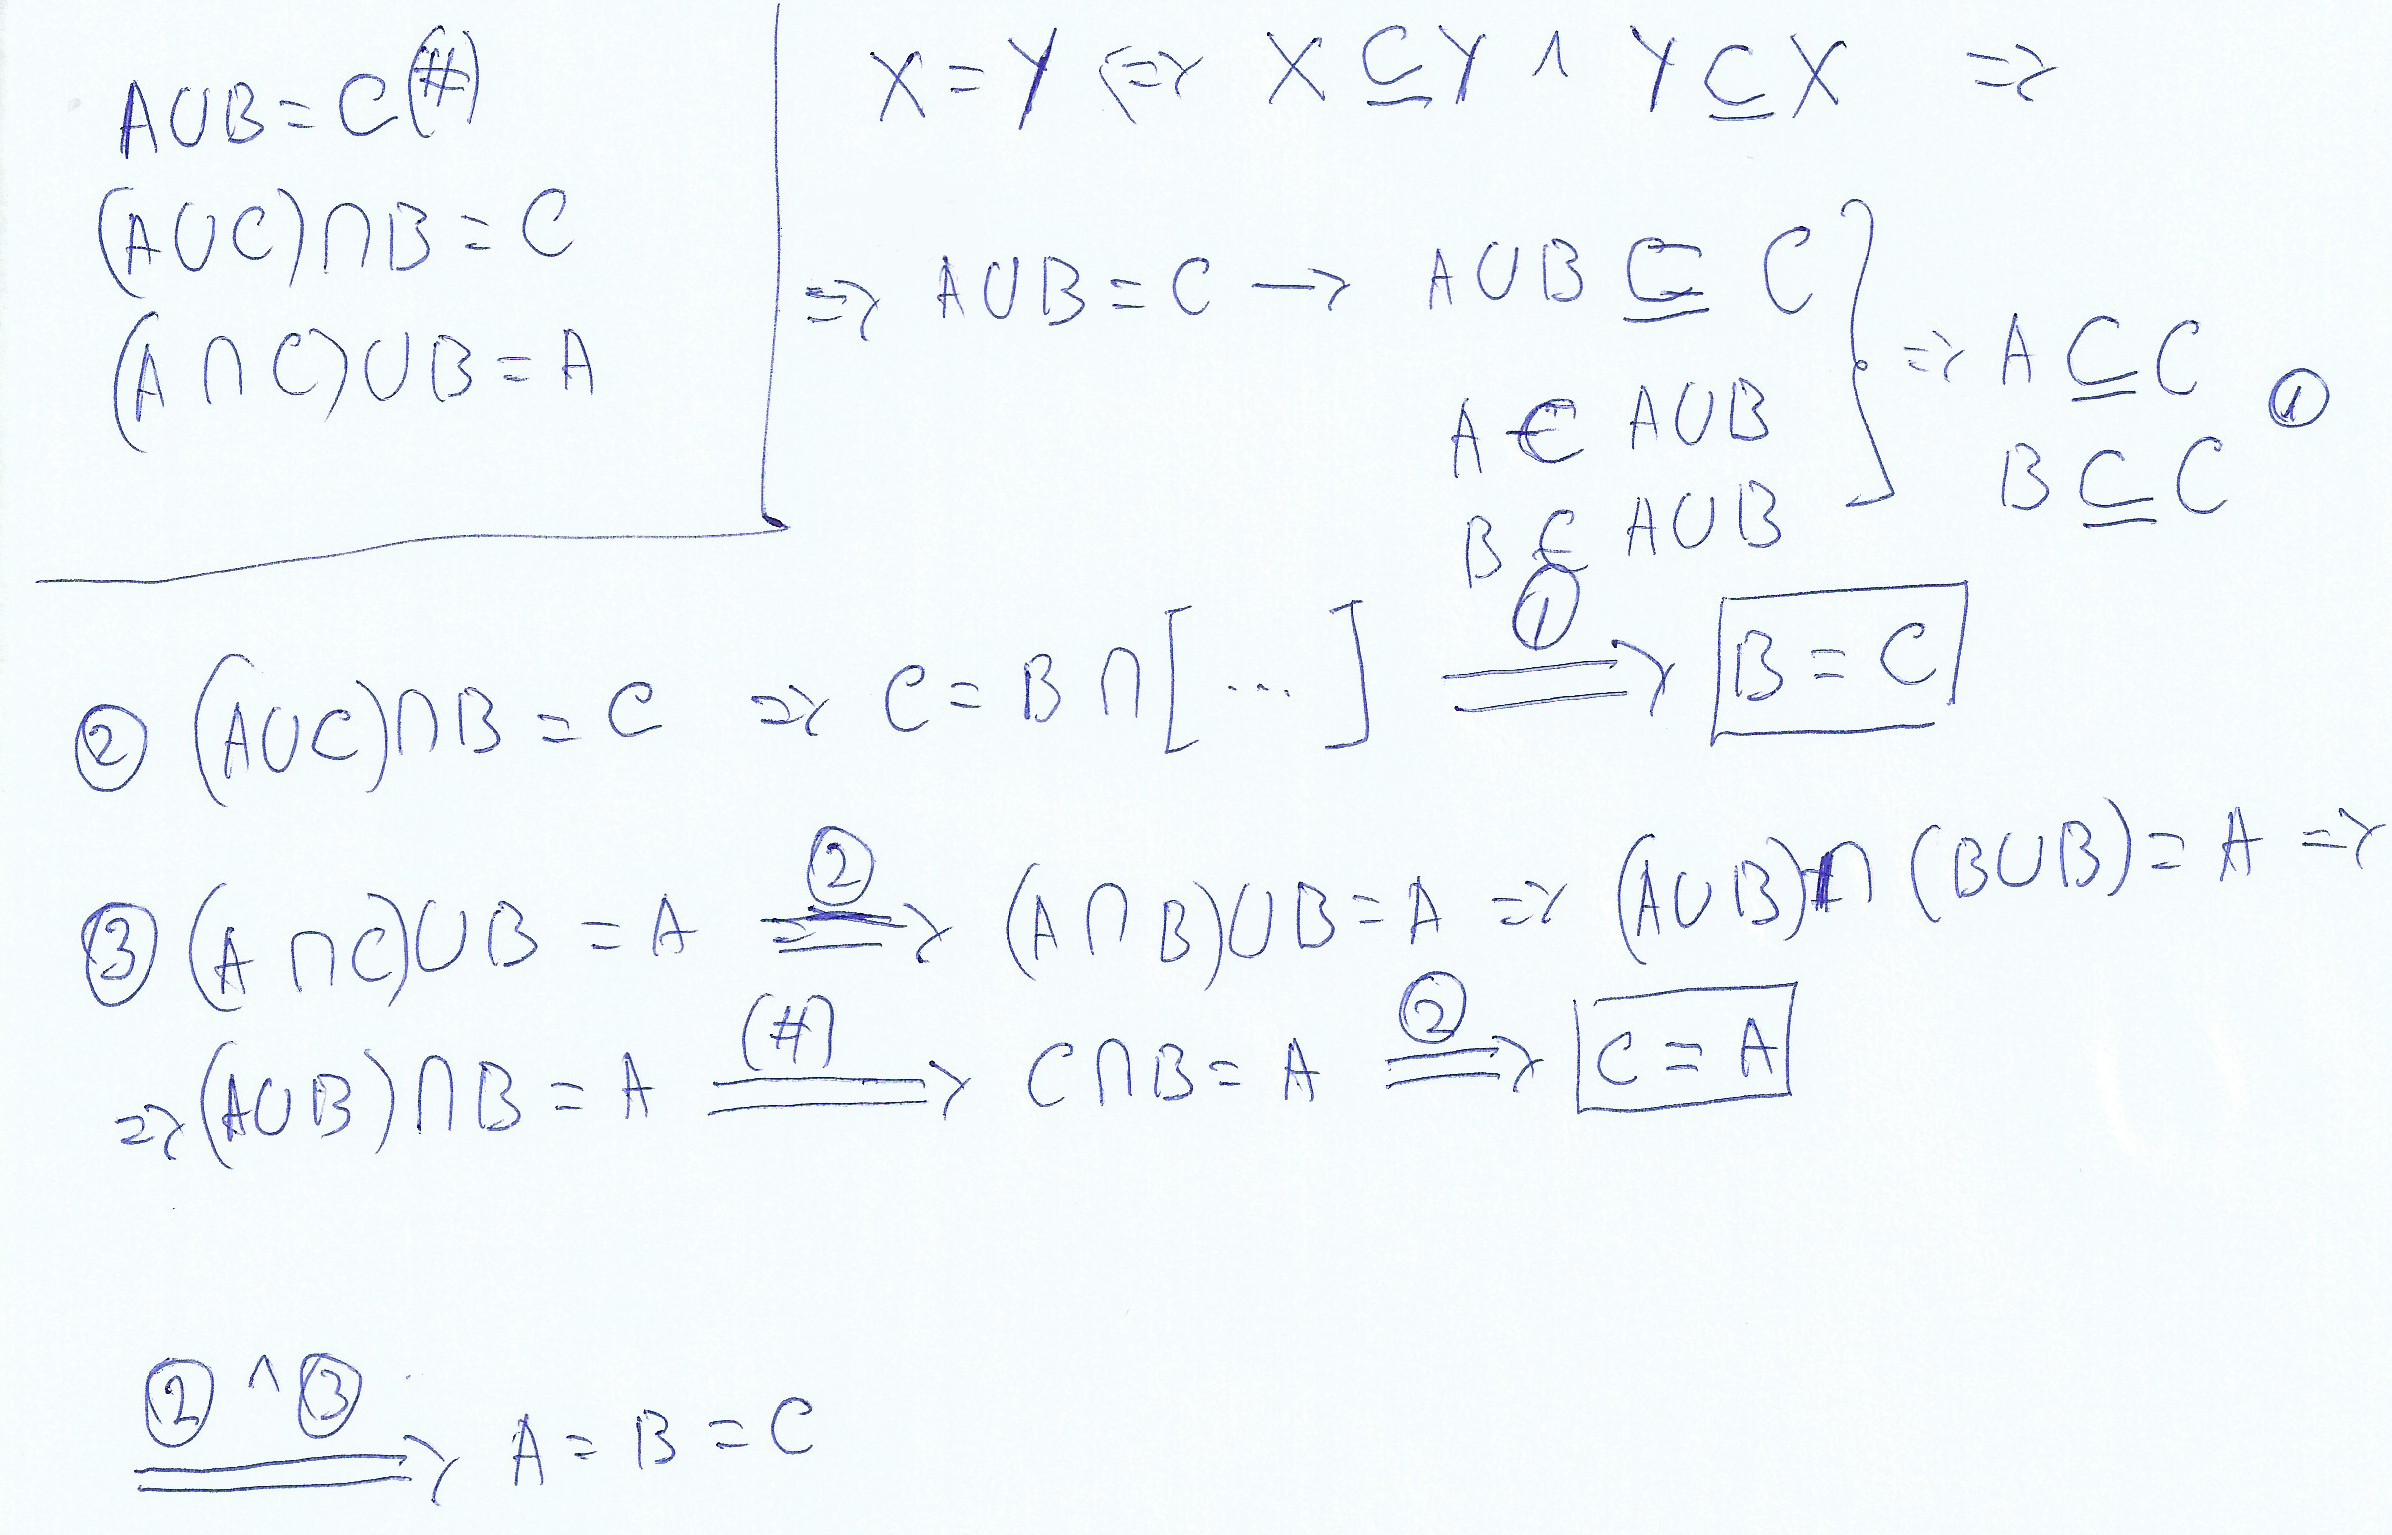 A∪B=C(#)
(A∪C)∩B=C
(A∩C)∪B=A
X=Y <=> X⊆Y ∧ Y⊆X =>
=> A∪B=C → A∪B ⊆ C
A ∈ A∪B
B ∈ A∪B
} => A⊆C ①
B⊆C
② (A∪C)∩B=C => C=B∩[...] ① ⟹ B=C
③ (A∩C)∪B=A ② ⟹ (A∩B)∪B=A => (A∪B)∩(B∪B)=A =>
=> (A∪B)∩B=A (#) ⟹ C∩B=A ② ⟹ C=A
② ∧ ③ ⟹ A=B=C